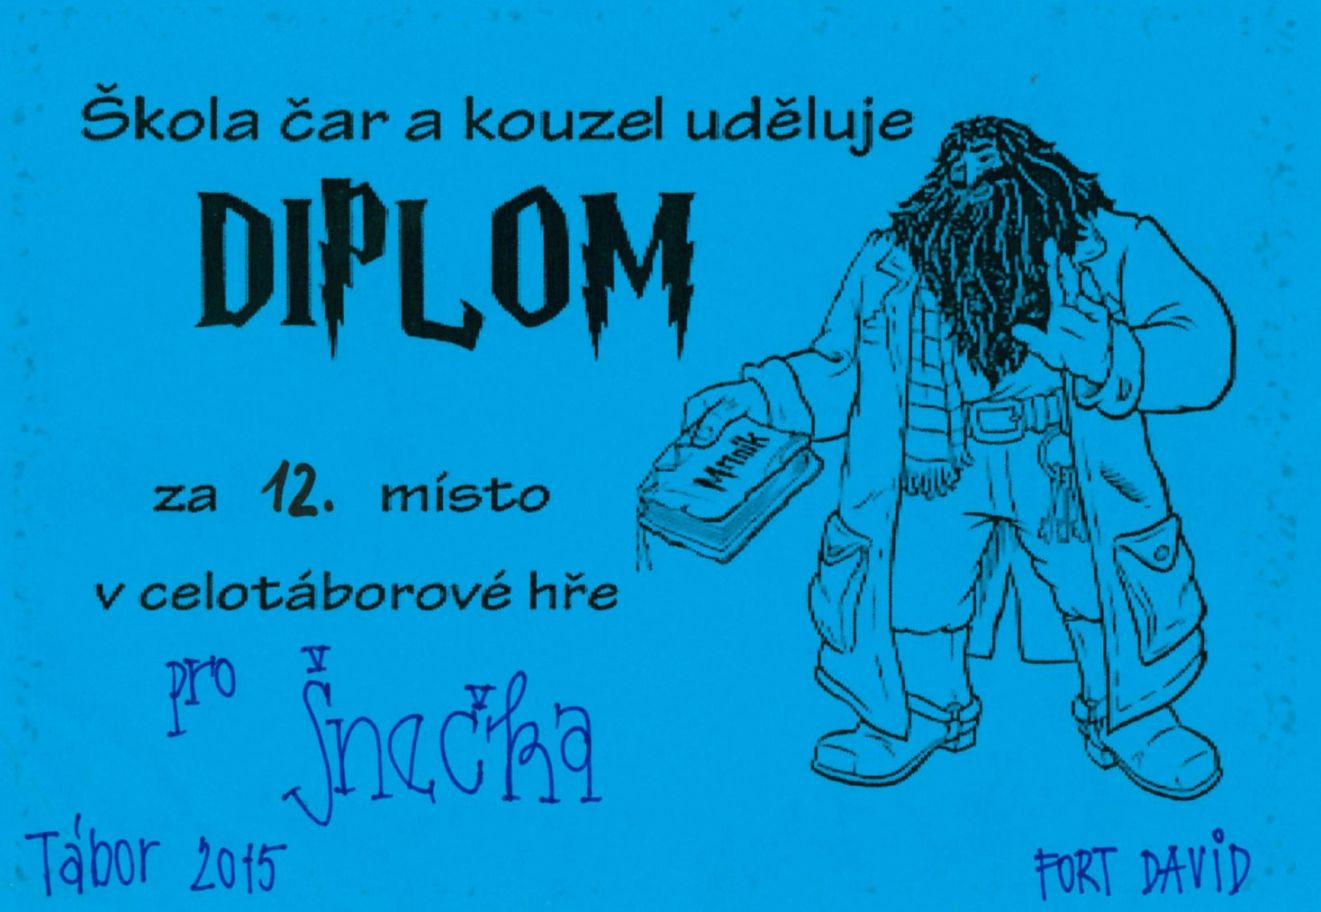 Škola čar a kouzel uděluje
DIPLOM
Mrzník
za 12. místo
v celotáborové hře
pro Šnečka
Tábor 2015
FORT DAVID